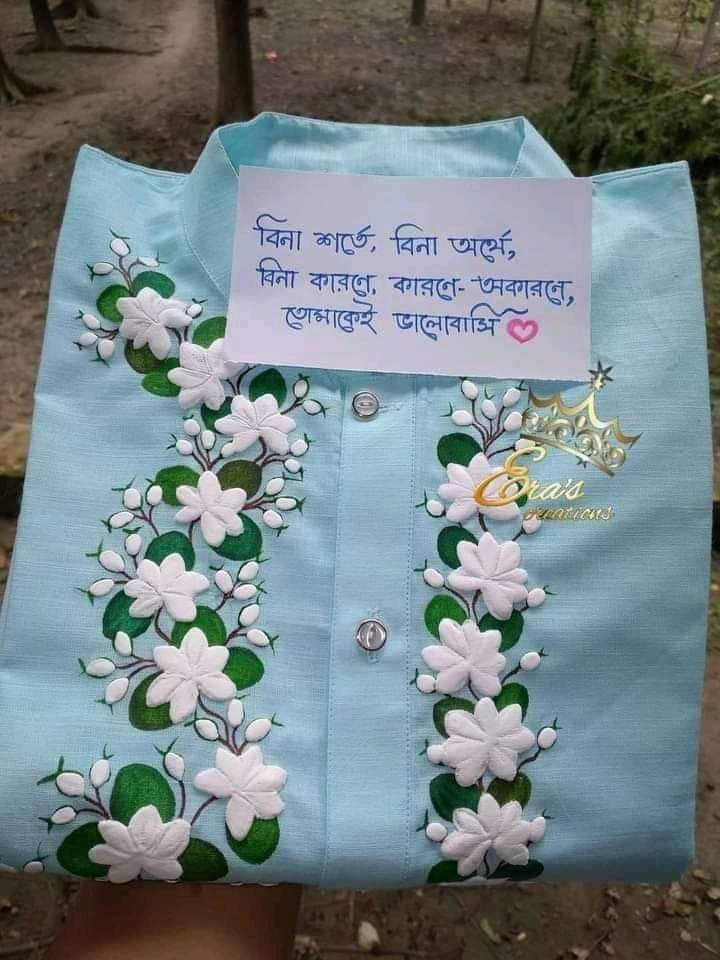 বিনা শর্তে, বিনা অর্থে,
বিনা কারণে, কারণে- অকারণে,
তোমাকেই ভালোবাসি
Era's
creations